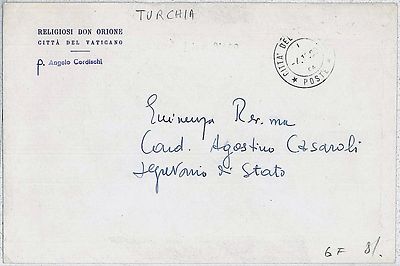 TURCHIA
RELIGIOSI DON ORIONE
CITTÀ DEL VATICANO
P. Angelo Cordischi
CITTA' DEL
POSTE
Eminenza Rev.ma
Card. Agostino Casaroli
Segretario di Stato
6 F 8/.